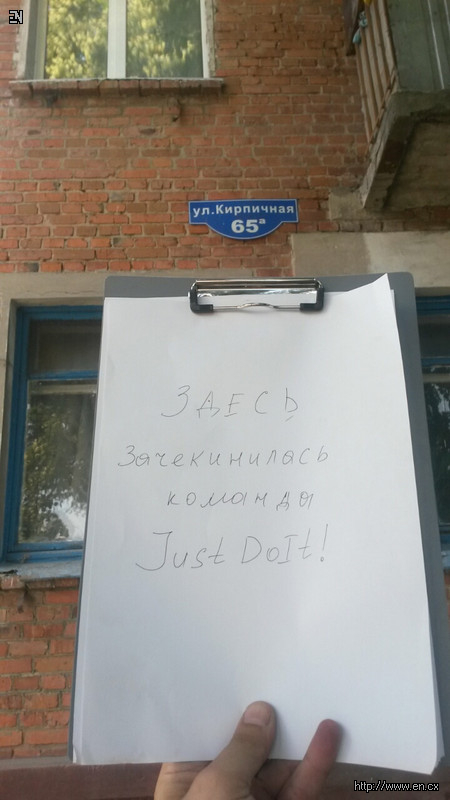 EN
ул.Кирпичная
65а
ЗДЕСЬ
зачекинилась
команды
Just DoIt!
http://www.en.cx